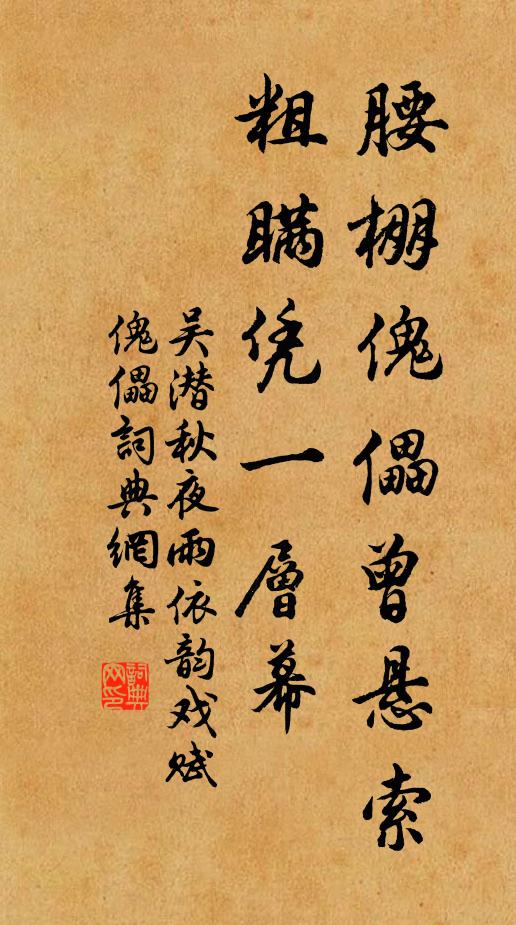 腰棚傀儡曾悬索
粗瞒凭一層幕
吴潜秋夜雨依韵戏赋
傀儡詞典網集
詞典网印